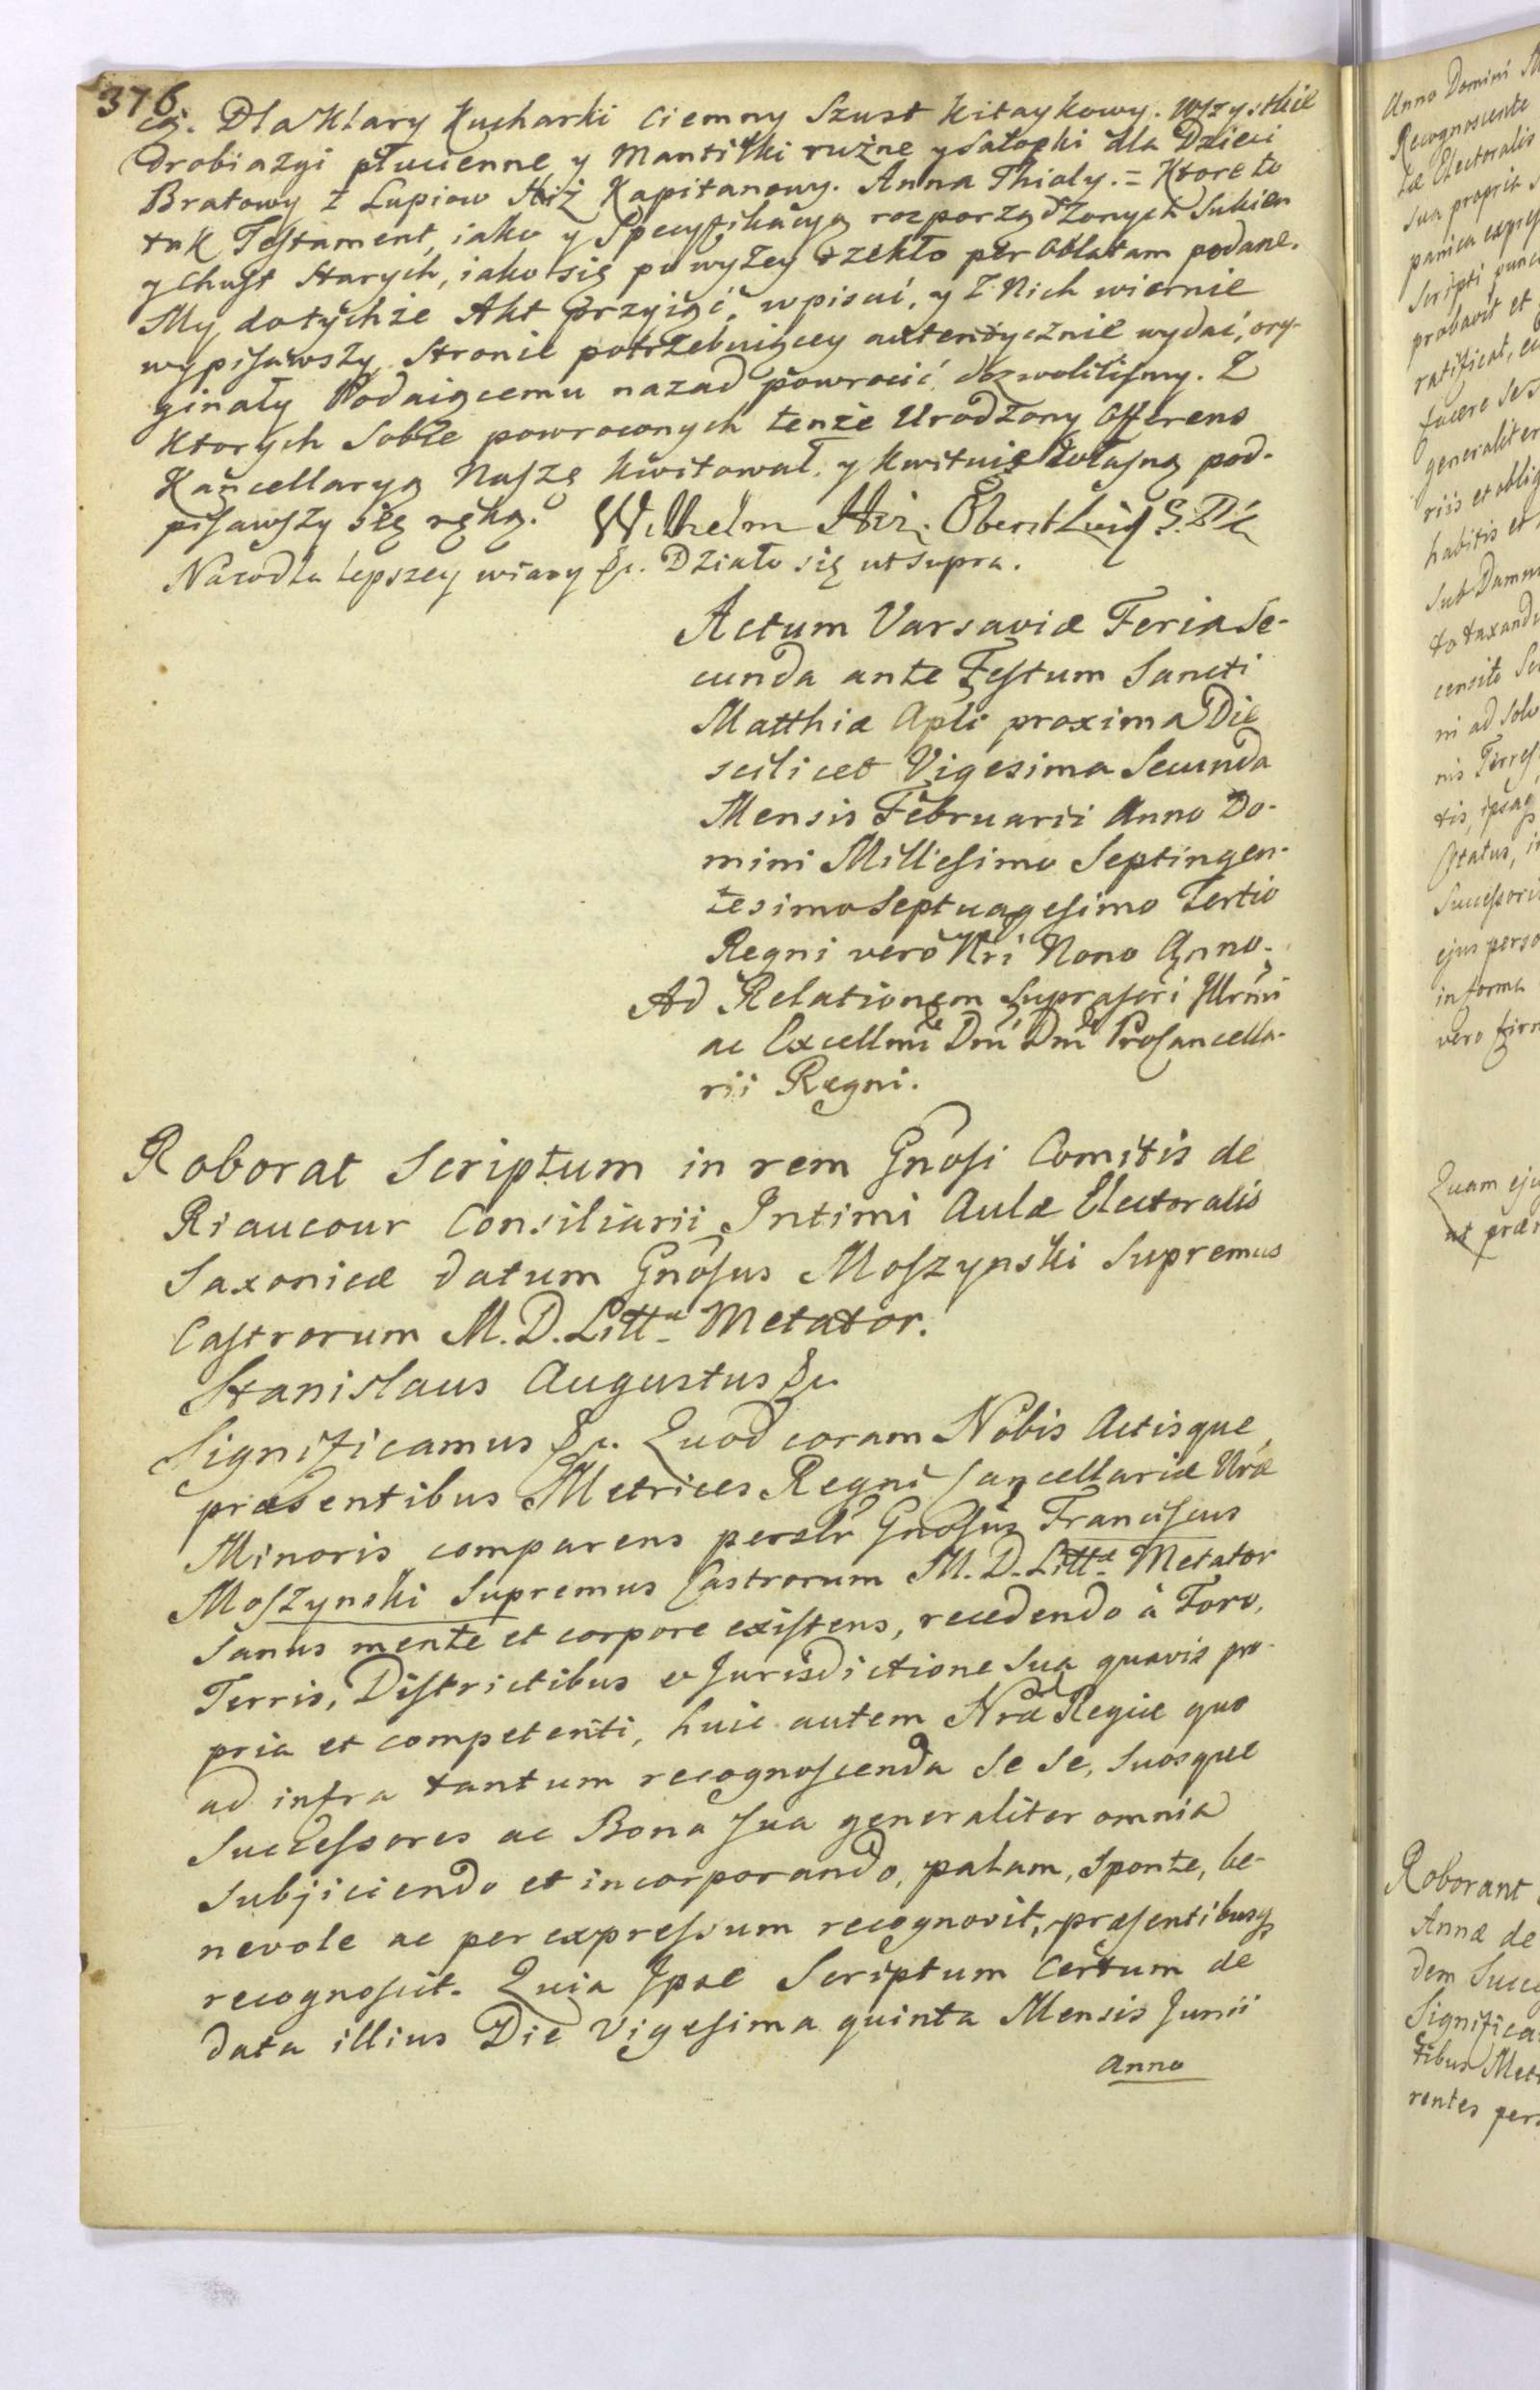 376.
cą. Dla Klary Kucharki Ciemny Szust Kitaykowy. Wszystkie
Drobiazgi płucienne y Mantilki rużne y Salopki dla Dzieci
Bratowy z Lupiow Hiż Kapitanowy. Anna Thialy. = Ktore to
tak Testament, iako y Specyfikacyą rozporządzonych Sukien
y Chust Starych, iako się powyżey rzekło per Oblatam podane.
My do tychże Akt przyiąć, wpisać, y z Nich wiernie
wypisawszy, Stronie potrzebuiącey autentycznie wydać, ory-
ginały Podaiącemu nazad powrocić dozwoliliśmy. Z
Ktorych Sobie powroconych tenże Urodzony Offerens
Kancellaryą Naszę kwitował, y kwituie własną pod-
pisawszy się ręką. Wilhelm Hiz.
Na co dla lepszey wiary &c. Działo się ut supra.
Actum Varsaviæ Feria Se-
cunda ante Festum Sancti
Matthiæ Apli proxima Die
scilicet Vigesima Secunda
Mensis Februarii Anno Do-
mini Millesimo Septingen-
tesimo Septuagesimo Tertio
Regni vero Nri Nono Anno.
Ad Relationem Suprascri Illrmi
ac Excellmi Dni Dni Procancella-
rii Regni.
Roborat Scriptum in rem Gnosi Comitis de
Riaucour Consiliarii Intimi Aulæ Electoralis
Saxonicæ datum Gnosus Moszynski Supremus
Castrorum M. D. Litt. Metator.
Stanislaus Augustus &c.
Significamus &c. Quod coram Nobis Actisque
præsentibus Metrices Regni Cancellariæ Nræ
Minoris comparens persolr Gnosus Franciscus
Moszynski Supremus Castrorum M. D. Litt. Metator
Sanus mente et corpore existens, recedendo à Foro,
Terris, Districtibus et Jurisdictione Sua quavis pro-
pria et competenti, huic autem Nræ Regiæ quo
ad infra tantum recognoscenda Se Se, Suosque
Successores ac Bona Sua generaliter omnia
Subjiciendo et incorporando, palam, Sponte, be-
nevole ac per expressum recognovit, præsentibusq
recognoscit. Quia Ipse Scriptum Certum de
data illius Die Vigesima quinta Mensis Junii
Anno
Anno Domini
Recognoscente
tæ Electoralis
Sua propria
Scripti
probavit et
ratificat,
facere
generaliter
riis et oblig
habitis et
Sub Damn
to taxand
censito
ni ad Solv
nis Terres
Status,
Successori
ejus perso
in forma
vero firm
Quam eju
ut præ
Roborant
Annæ de
dem Succ
Significa
tibus Met
rentes pers